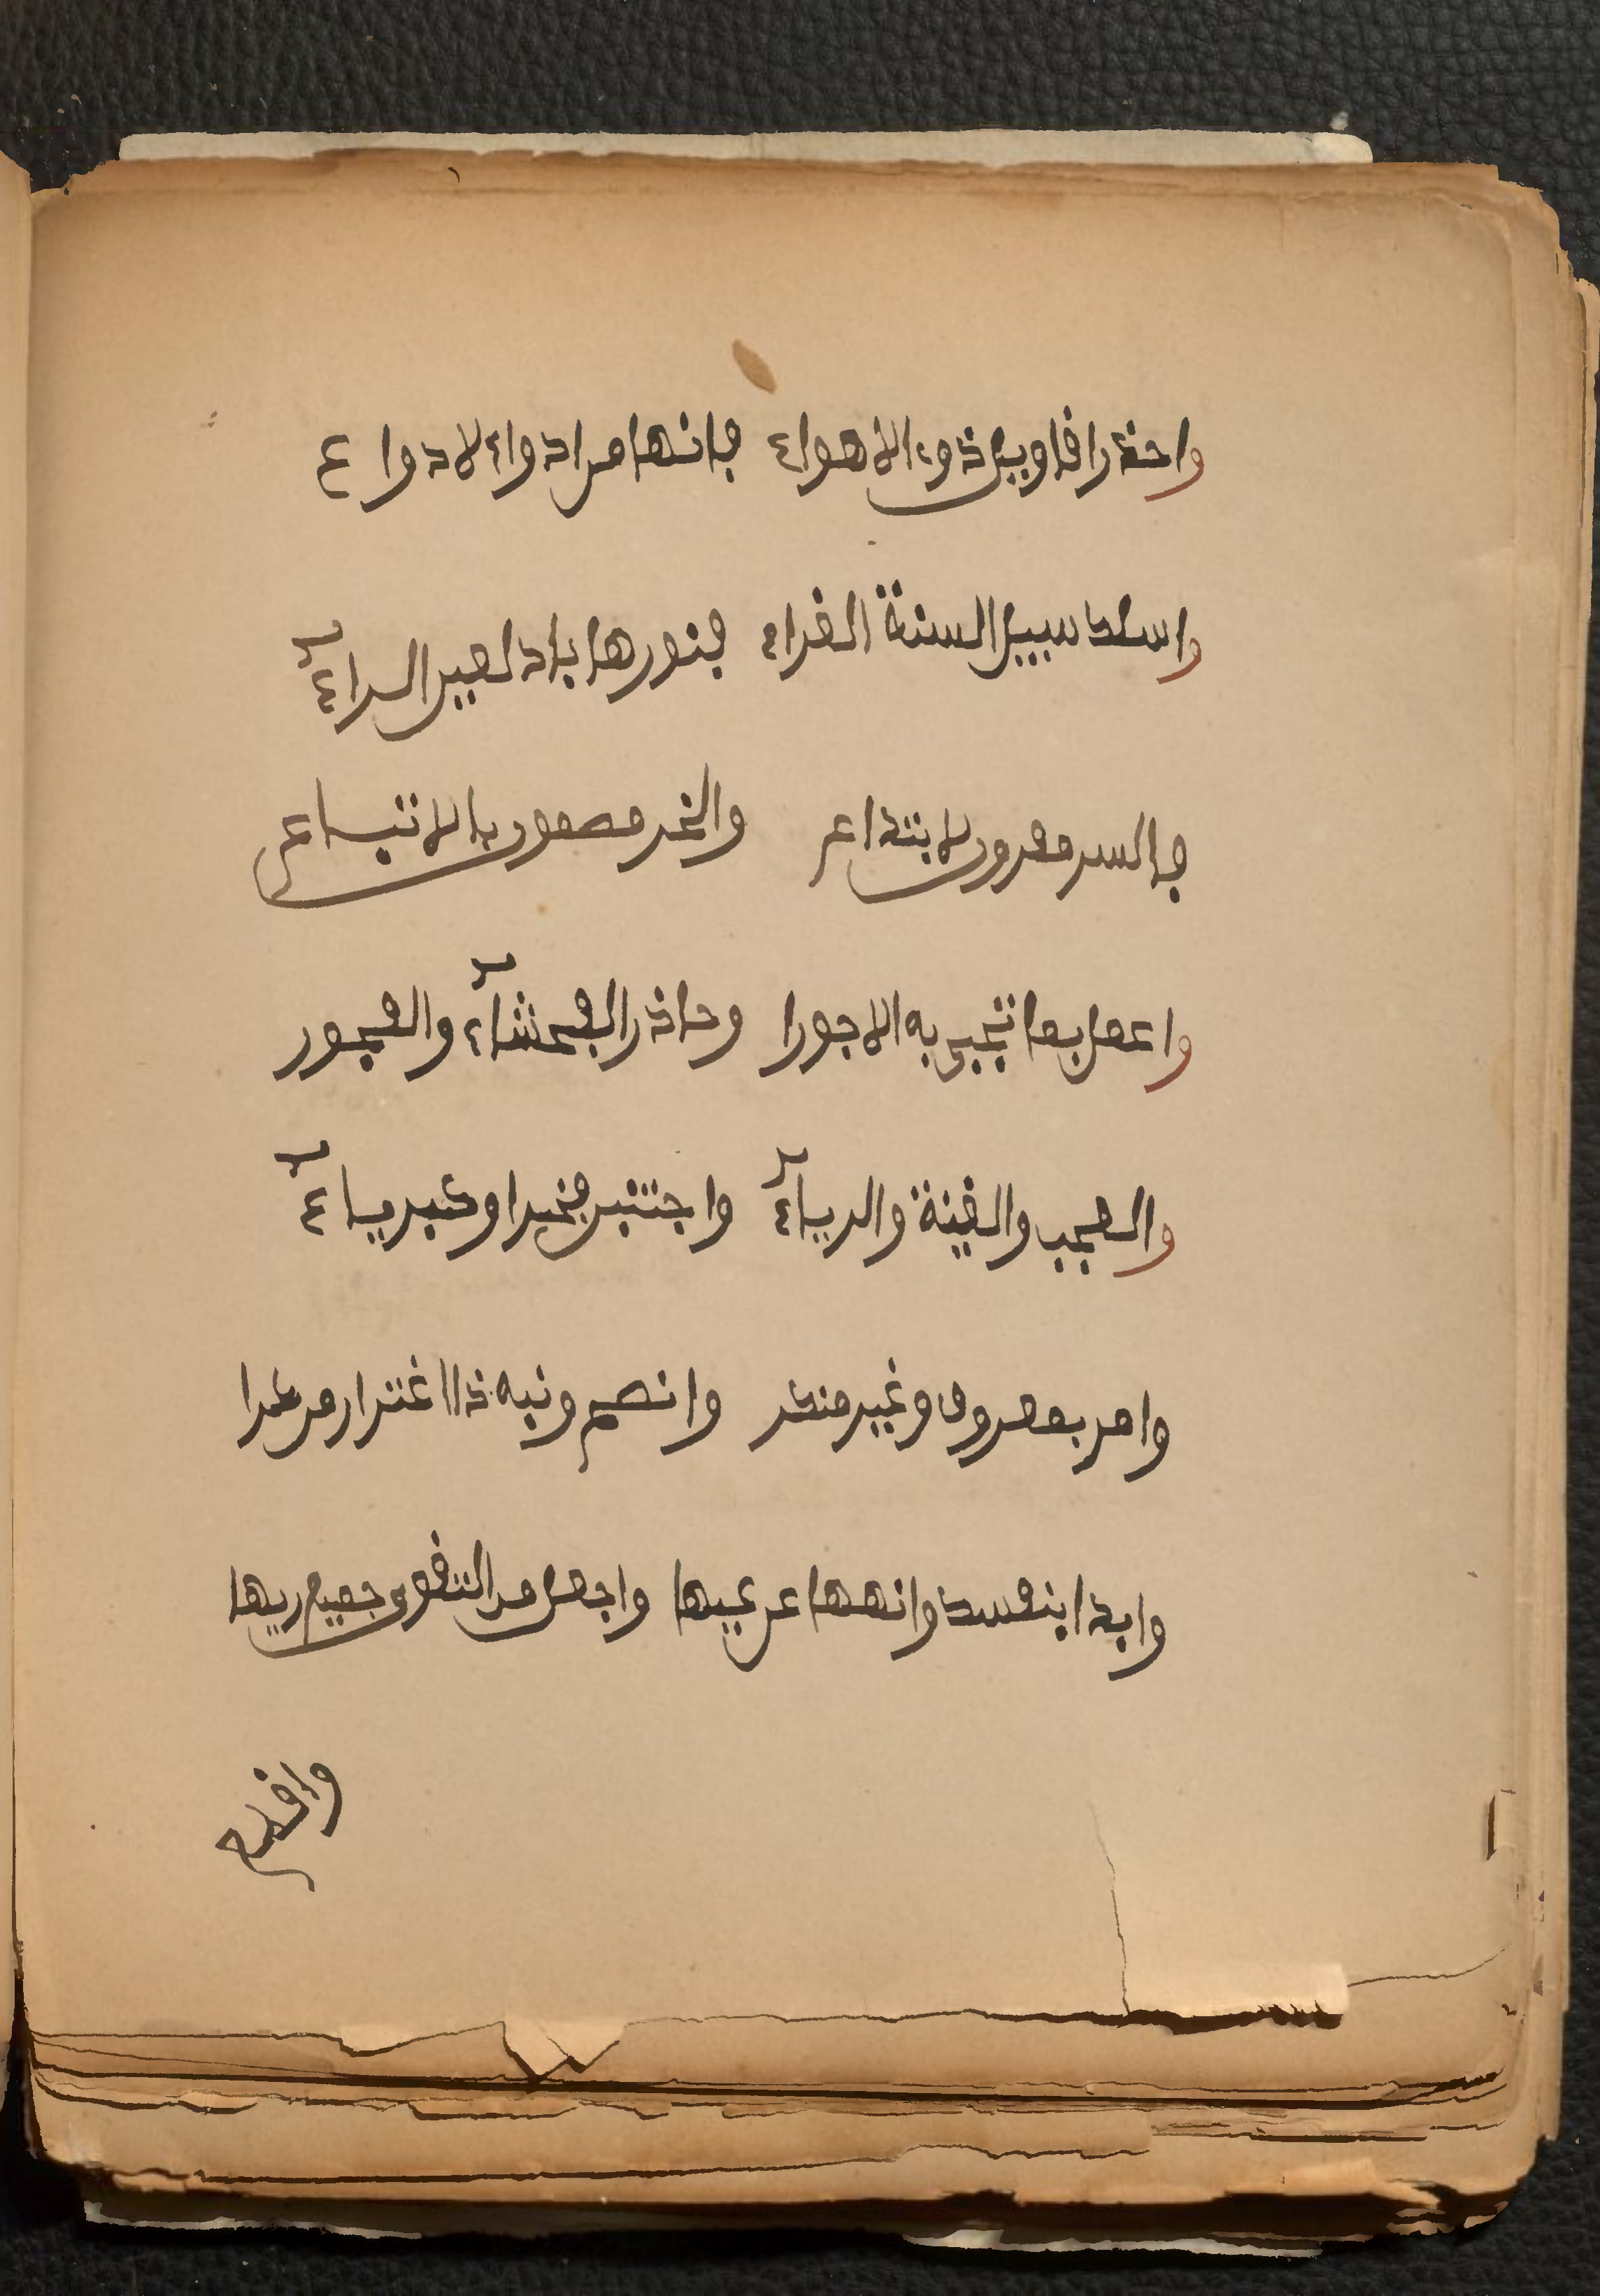 واحذر اقاويل ذوي الاهواء فانها من ادواء الادواء
واسلك سبيل السنة الغراء فنورها باد لعين الراءي
فالشر مقرون للابتداع والخير مضمون بالاتباع
واعمل بما تجبى به الاجورا وحاذر الفحشاء والفجور
والعجب والغيبة والرياء واجتنبن فخرا وكبرياء
وامر بمعروف وغير منكر وانصح ونبه ذا اغترار مركرا
وابدا بنفسك وانهها عن غيها واجعل من التقوى جميع ريها
وافهم